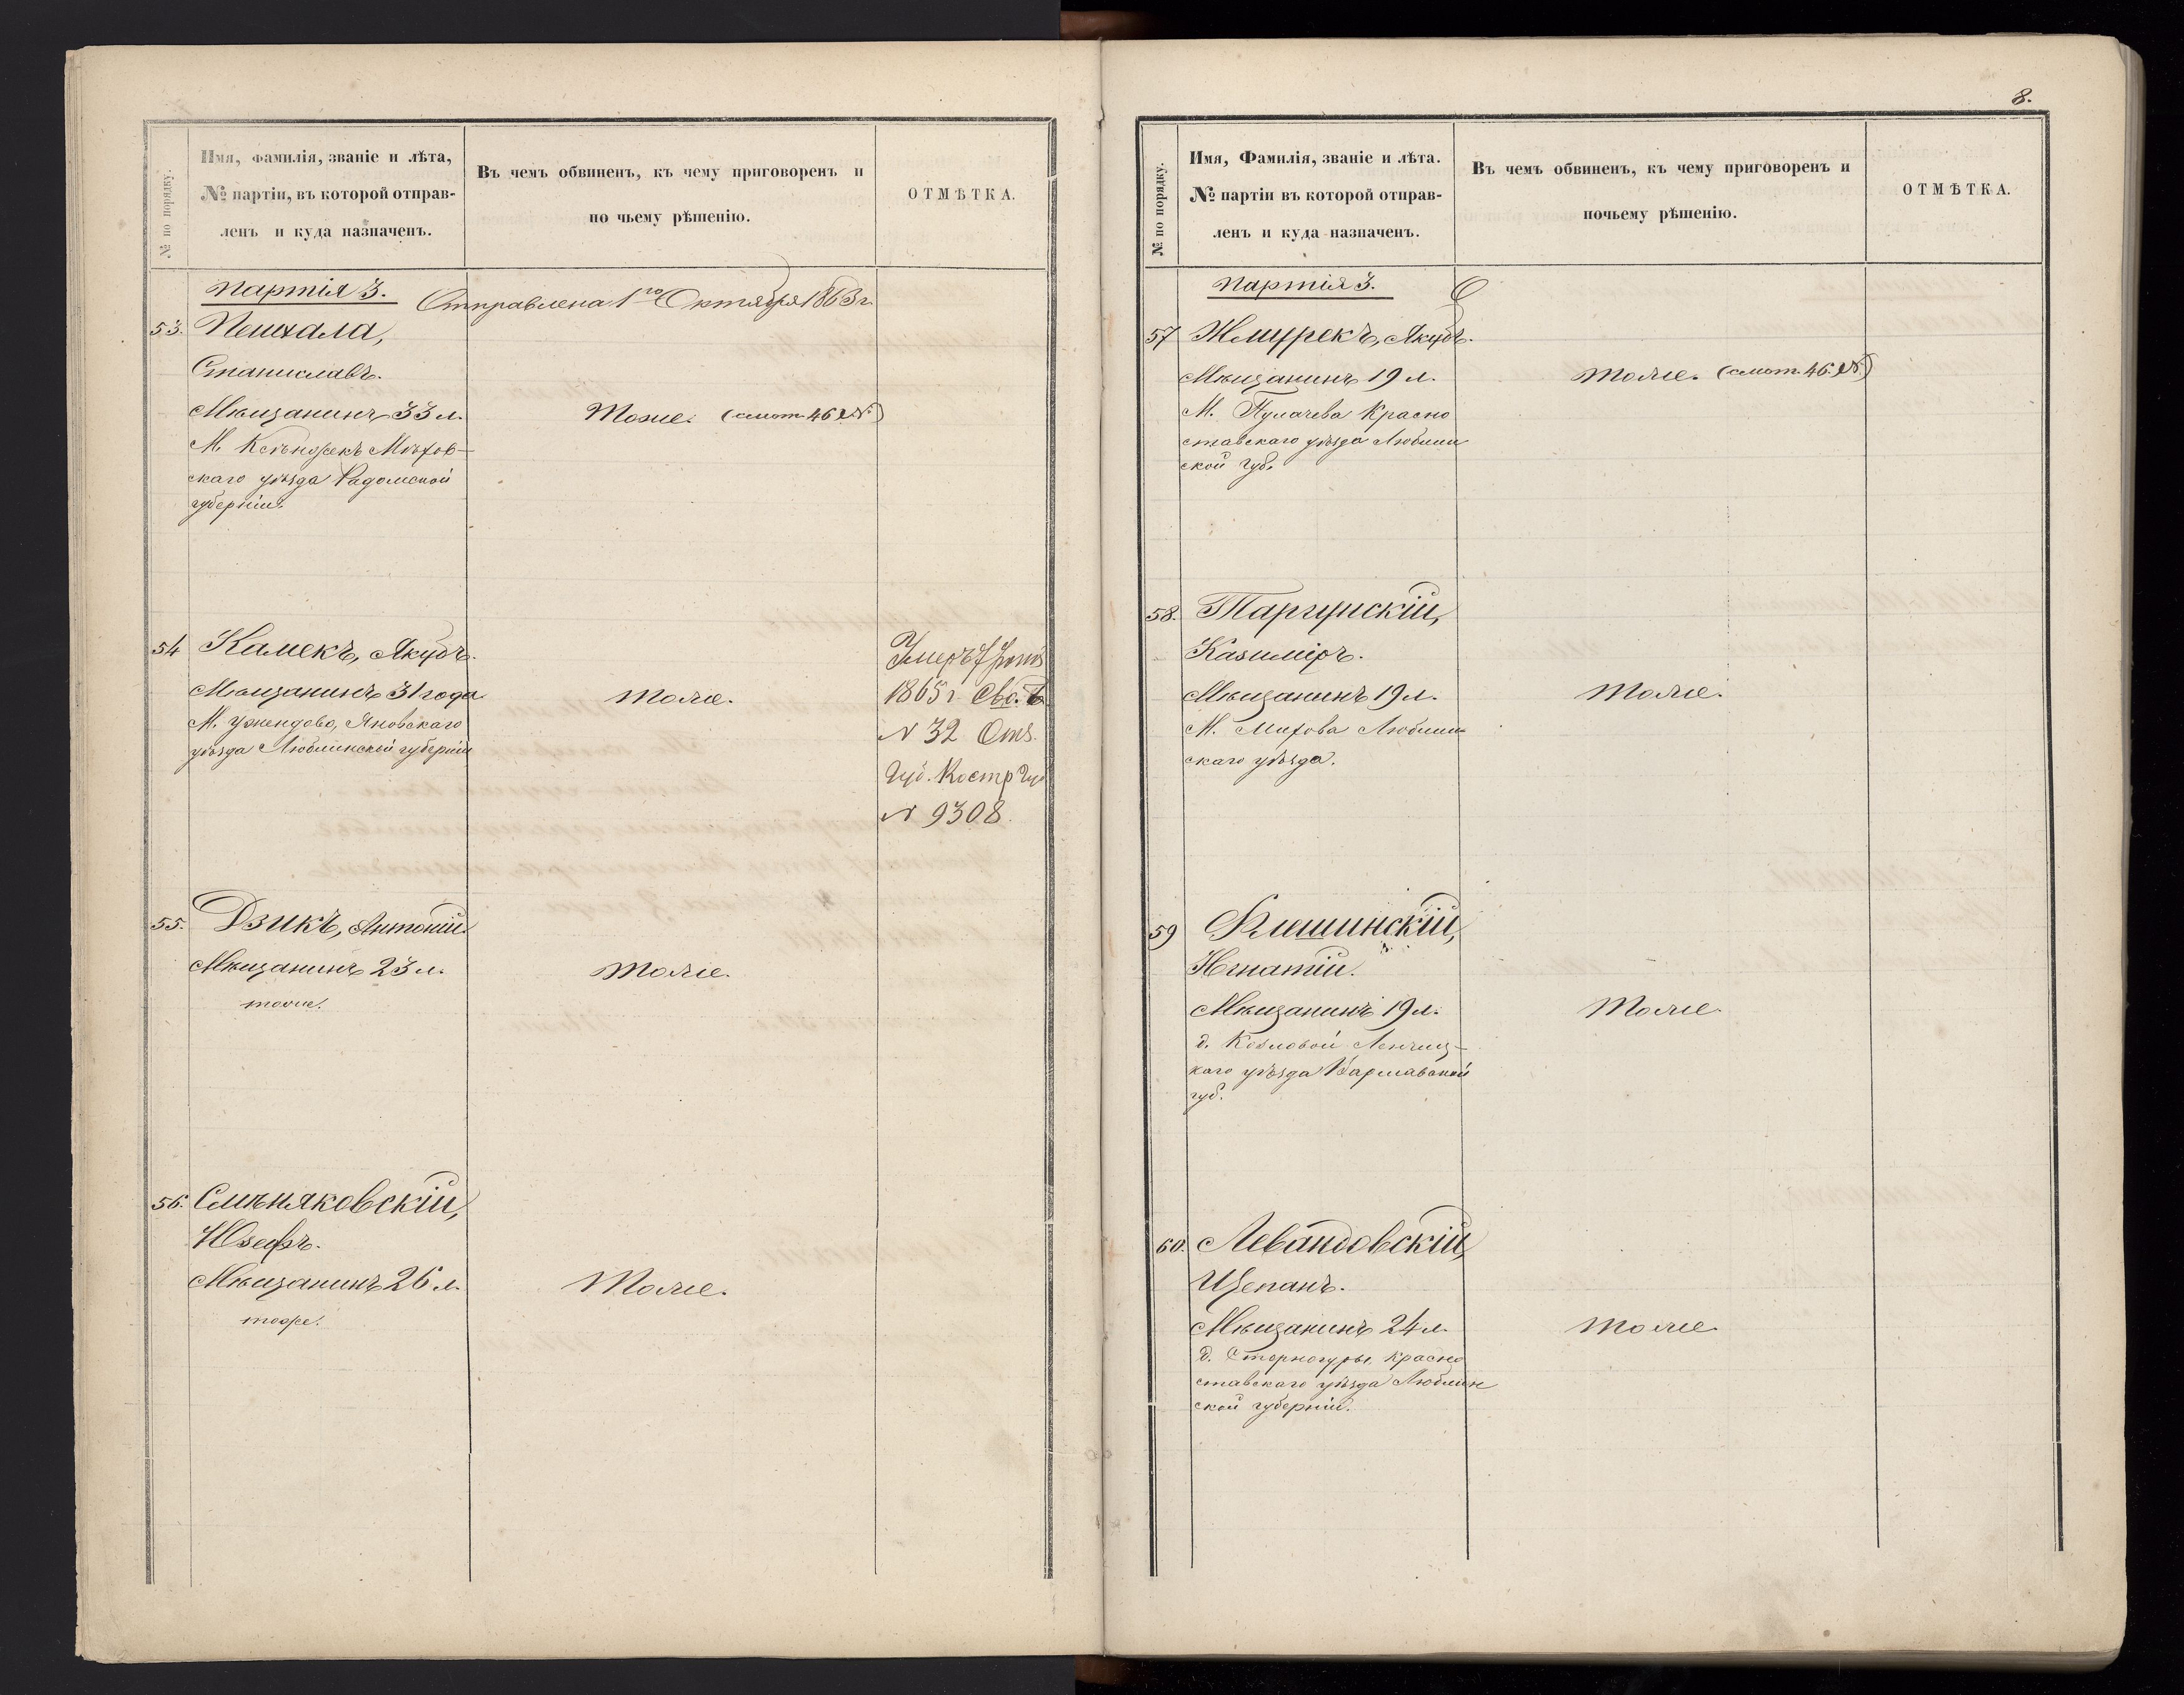 № по порядку.
Имя, Фамилія, званіе и лѣта,
№ партіи, въ которой отправ-
ленъ и куда назначенъ.
Въ чемъ обвиненъ, къ чему приговоренъ и
по чьему рѣшенію.
ОТМѢТКА.
Партія 3.
Отправлена 1го Октября 1863 г.
53.
Пешхала,
Станиславъ.
Мѣщанинъ 33 л.
Тоже. (смот. 46 №)
М. Ксѣнжекъ Мѣхов-
скаго уѣзда Радомской
губерніи.
54
Камекъ, Якубъ.
Мѣщанинъ 31 года
М. Ужендово, Яновскаго
уѣзда Люблинской губерніи
Тоже.
Умеръ 7
1865 г.
№ 32 Отз.
Губ. Костр Губ
№ 9308.
55.
Дзикъ, Антоній.
Мѣщанинъ 23 л.
тоже.
Тоже.
56.
Смѣняковскій,
Юзефъ.
Мѣщанинъ 26 л.
тоже.
Тоже.
8.
№ по порядку.
Имя, Фамилія, званіе и лѣта.
№ партіи въ которой отправ-
ленъ и куда назначенъ.
Въ чемъ обвиненъ, къ чему приговоренъ и
почьему рѣшенію.
ОТМѢТКА.
Партія 3.
57
Жмурекъ, Якубъ.
Мѣщанинъ 19 л.
Тоже. (смот. 46. №)
М. Пулачева Красно
ставскаго уѣзда Люблин
ской губ.
58.
Таргунскій,
Казиміръ.
Мѣщанинъ 19 л.
Тоже.
М. Михова Люблин
скаго уѣзда.
59
Клешинскій,
Игнатій.
Мѣщанинъ 19 л.
Тоже.
д. Козловой Ленчиц-
каго уѣзда Варшавской
губ.
60.
Левандовскій,
Щепанъ.
Мѣщанинъ 24 л.
Тоже
д. Сторногуры, Красно
ставскаго уѣзда Люблин
ской губерніи.